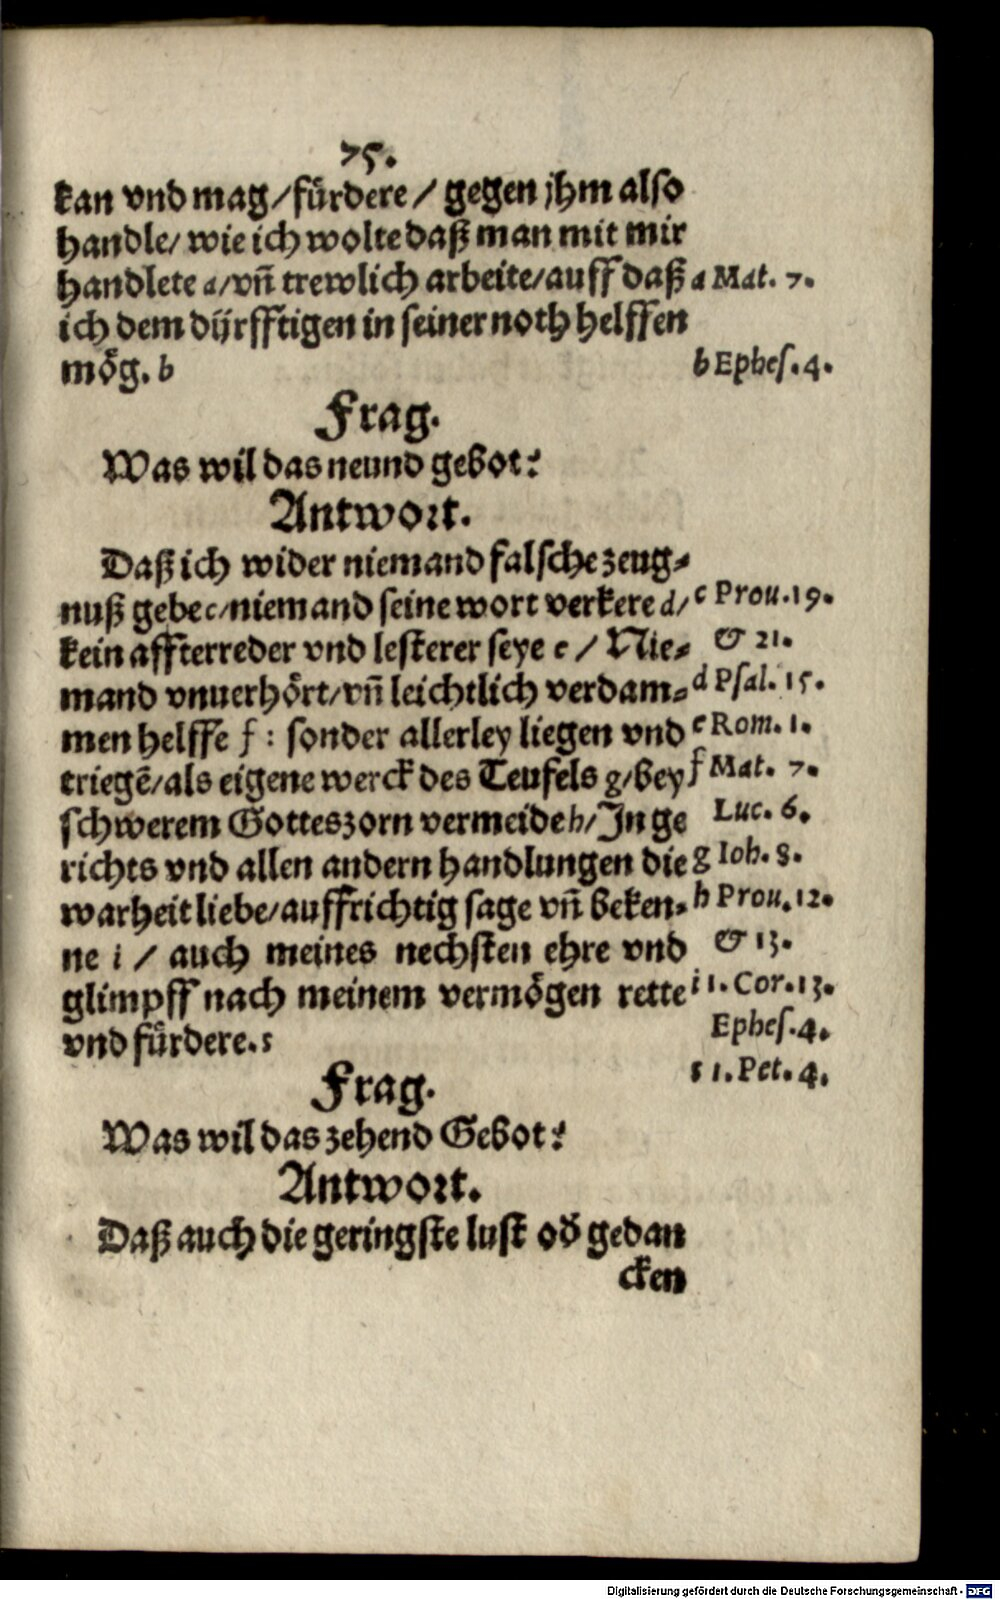 75.
kan vnd mag/fürdere/ gegen jhm also
handle/ wie ich wolte daß man mit mir
handlete a/vñ trewlich arbeite/auff daß a Mat. 7.
ich dem dürfftigen in seiner noth helffen
mög. b b Ephes. 4.
Frag.
Was wil das neund gebot?
Antwort.
Daß ich wider niemand falsche zeug-
nuß gebe c/niemand seine wort verkere d/ c Prou. 19.
kein affterreder vnd lesterer seye e / Nie- & 21.
mand vnuerhört/vñ leichtlich verdam- d Psal. 15.
men helffe f : sonder allerley liegen vnd e Rom. 1.
triegẽ/als eigene werck des Teufels g/bey f Mat. 7.
schwerem Gotteszorn vermeide h/In ge Luc. 6.
richts vnd allen andern handlungen die g Ioh. 8.
warheit liebe/auffrichtig sage vñ beken- h Prou. 12.
ne i / auch meines nechsten ehre vnd & 13.
glimpff nach meinem vermögen rette i 1. Cor. 13.
vnd fürdere. s Ephes. 4.
s 1. Pet. 4.
Frag.
Was wil das zehend Gebot?
Antwort.
Daß auch die geringste lust od̓ gedan
cken
Digitalisierung gefördert durch die Deutsche Forschungsgemeinschaft - DFG